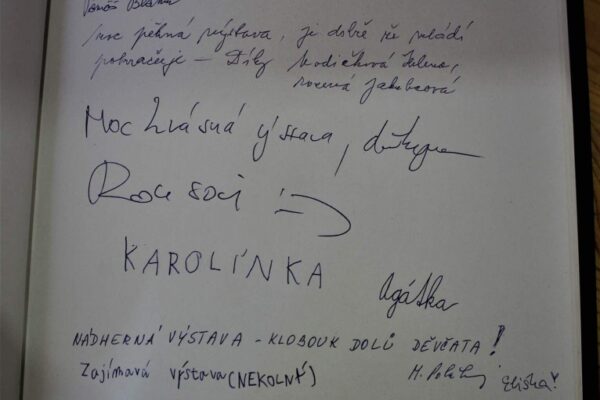 moc pěkná výstava, je dobře že mládí
pokračuje – Díky Vodičková Helena,
rozená Jakubcová
Moc krásná výstava, děkujeme
KAROLÍNKA
Agátka
NÁDHERNÁ VÝSTAVA - KLOBOUK DOLŮ DĚVČATA!
Zajímavá výstava (NEKOLNÁ)
Eliška!